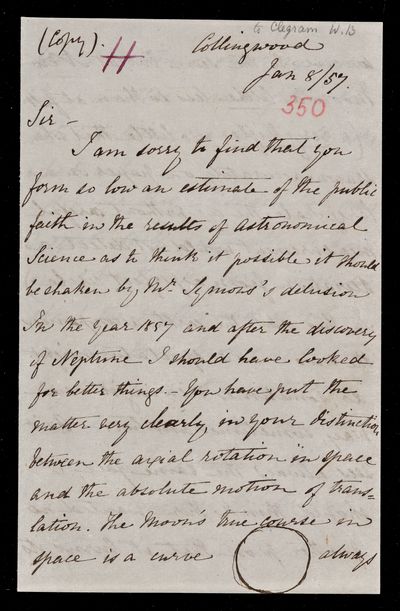 to Clegram W.B
(Copy). H
Collingwood
Jan 8/57.
350
Sir –
I am sorry to find that you
form so low an estimate of the public
faith in the results of astronomical
Science as to think it possible it should
be shaken by Mr. Symons's delusion
In the year 1857 and after the discovery
of Neptune I should have looked
for better things. – You have put the
matter very clearly in your distinction
between the axial rotation in space
and the absolute motion of trans=
lation. The Moon's true course in
space is a curve always